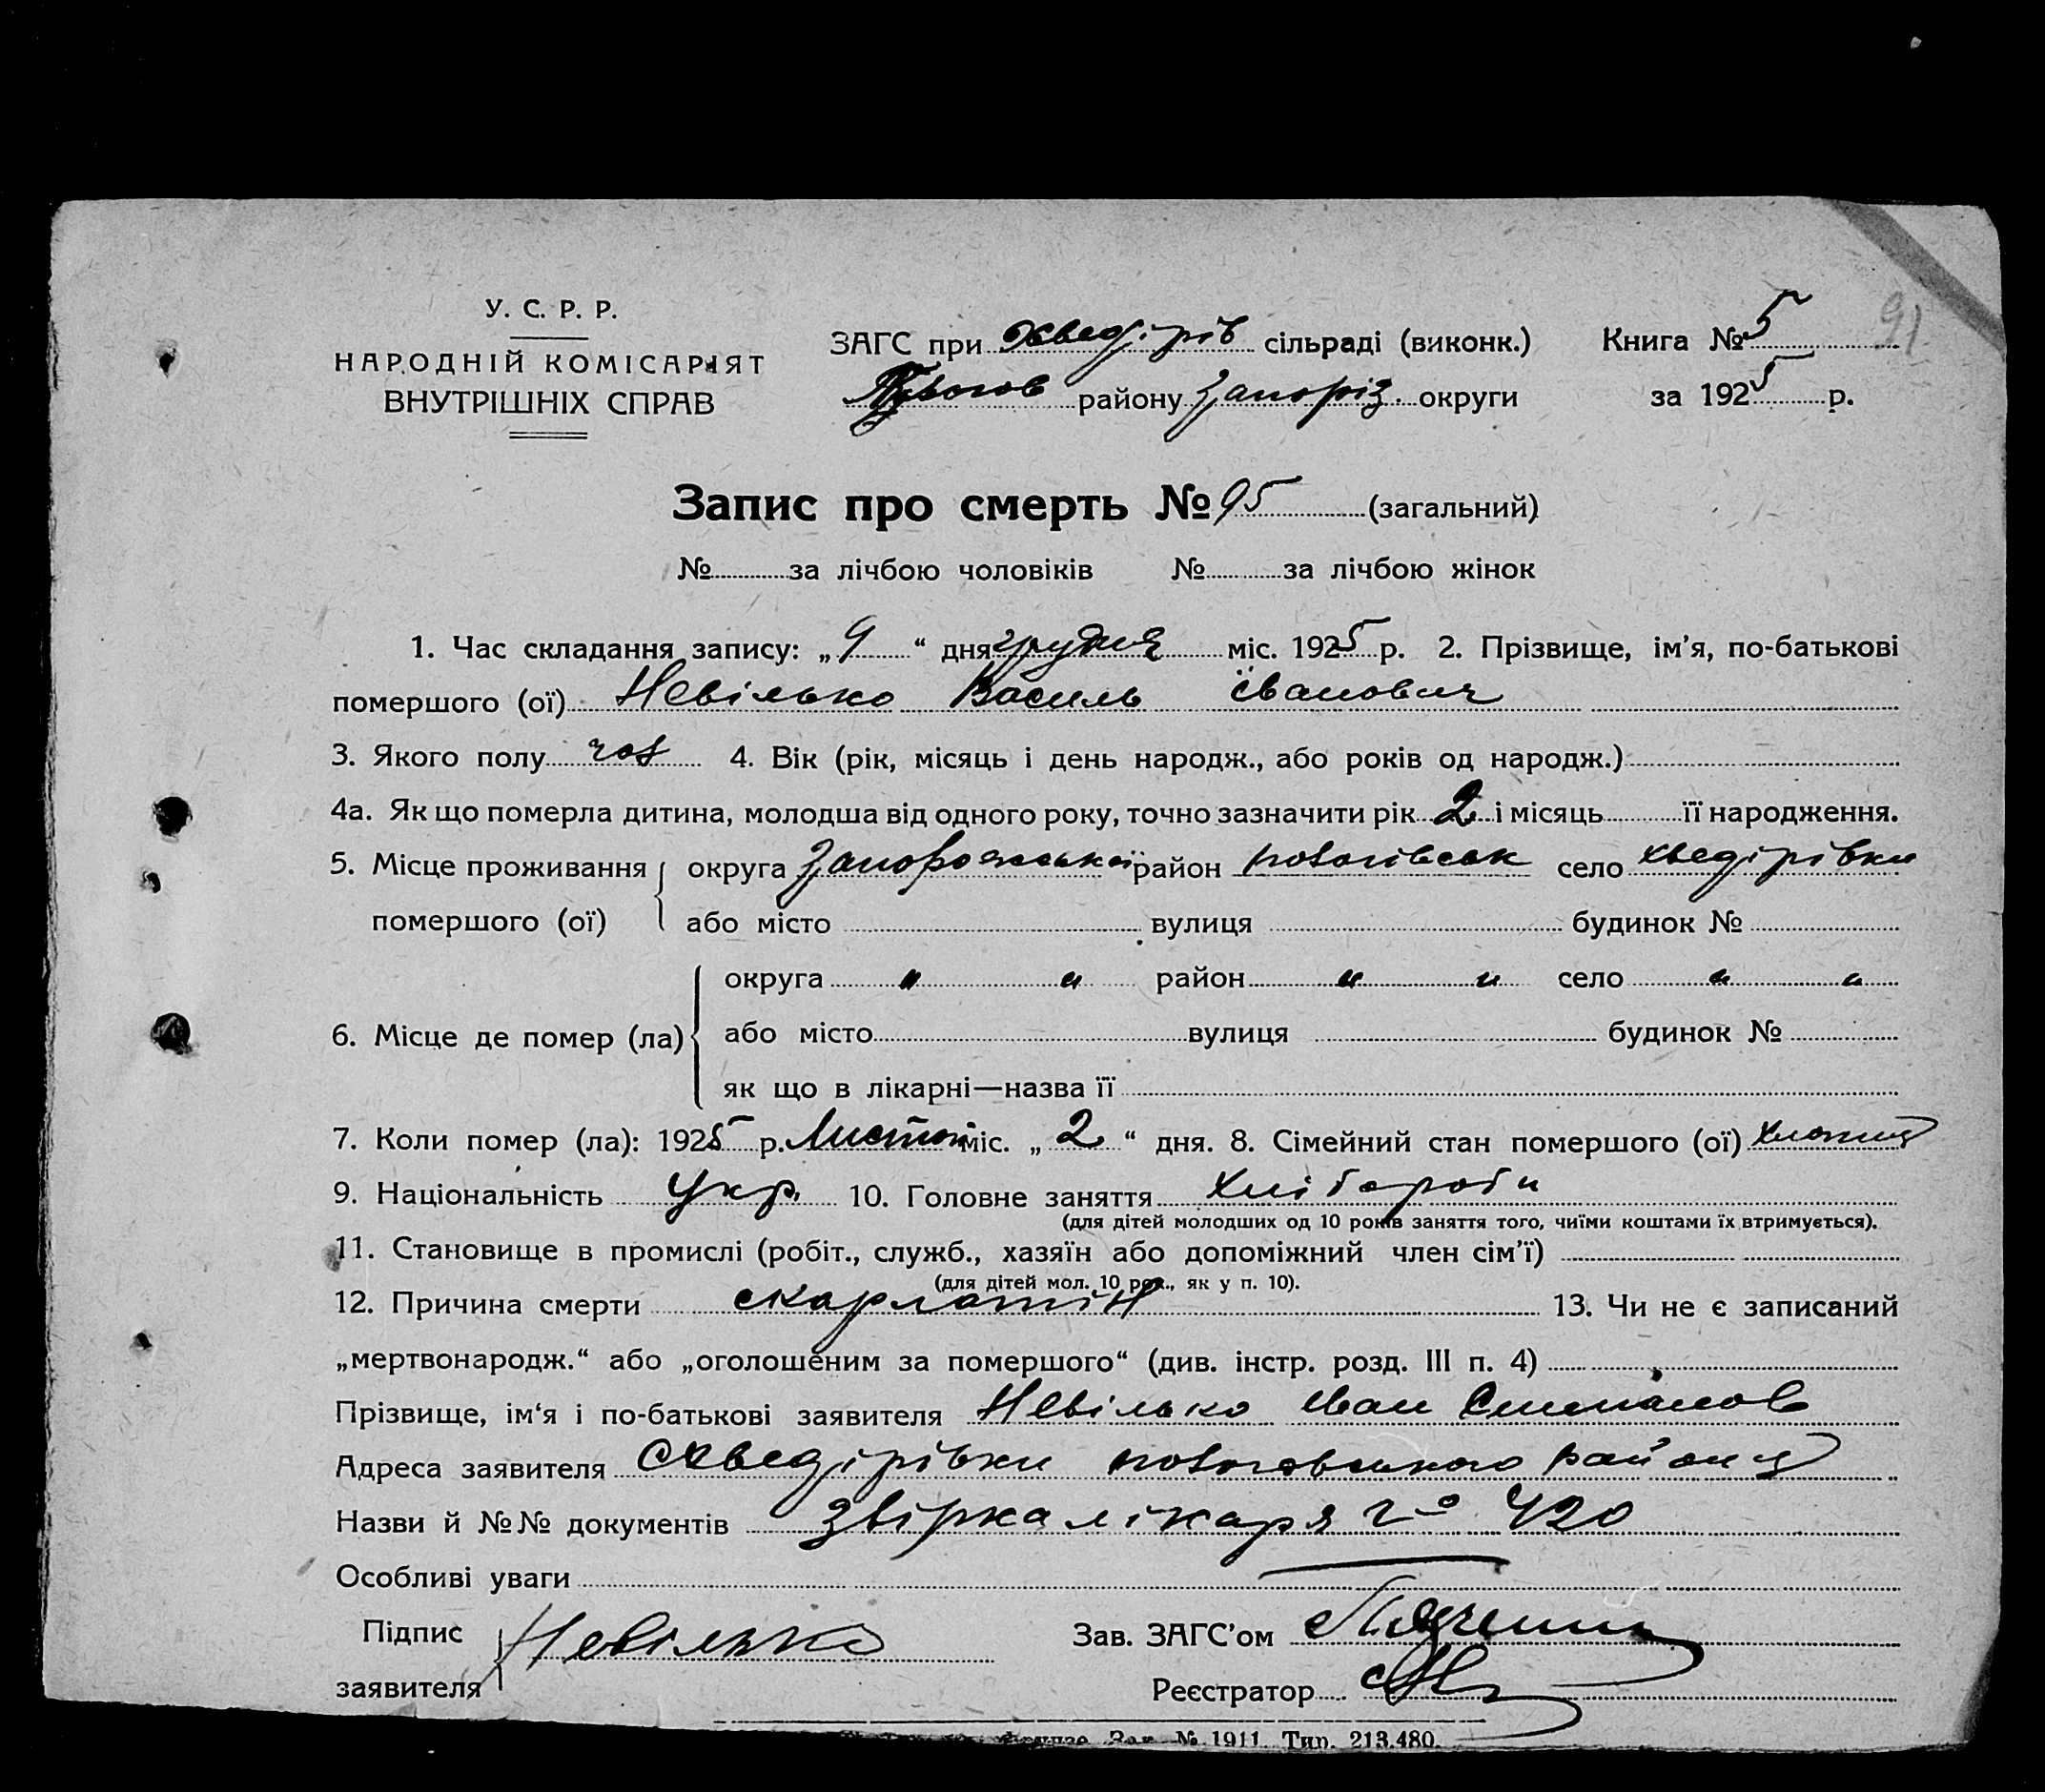 У. С. Р. Р.
НАРОДНІЙ КОМІСАРІЯТ
ВНУТРІШНІХ СПРАВ
ЗАГС при Хведірів сільраді (виконк.) Книга № 5 91
району Запоріз. округи за 1925 р.
Запис про смерть № 95 (загальний)
№ за лічбою чоловіків № за лічбою жінок
1. Час складання запису: „9“ дня грудня міс. 1925 р. 2. Прізвище, ім’я, по-батькові
помершого (ої) Невілько Василь Іванович
3. Якого полу чол 4. Вік (рік, місяць і день народж., або років од народж.)
4а. Як що померла дитина, молодша від одного року, точно зазначити рік 2 і місяць її народження.
5. Місце проживання округа Запорожської район пологівськ село хведірівки
помершого (ої) або місто вулиця будинок №
округа " " район " " село " "
6. Місце де помер (ла) або місто вулиця будинок №
як що в лікарні—назва її
7. Коли помер (ла): 1925 р. Листоп міс. „2“ дня. 8. Сімейний стан помершого (ої)
9. Національність Укр. 10. Головне заняття Хлібороби
(для дітей молодших од 10 років заняття того, чиїми коштами їх втримується).
11. Становище в промислі (робіт., служб., хазяїн або допоміжний член сім’ї)
(для дітей мол. 10 рок., як у п. 10).
12. Причина смерти скарлатін 13. Чи не є записаний
„мертвонародж.“ або „оголошеним за помершого“ (див. інстр. розд. III п. 4)
Прізвище, ім‘я і по-батькові заявителя Невілько Іван
Адреса заявителя Хведірівки пологовського району
Назви й №№ документів Звірка лікаря 420
Особливі уваги
Підпис Невілько Зав. ЗАГС’ом
заявителя Реєстратор
Зак. № 1911. Тир. 213.480.